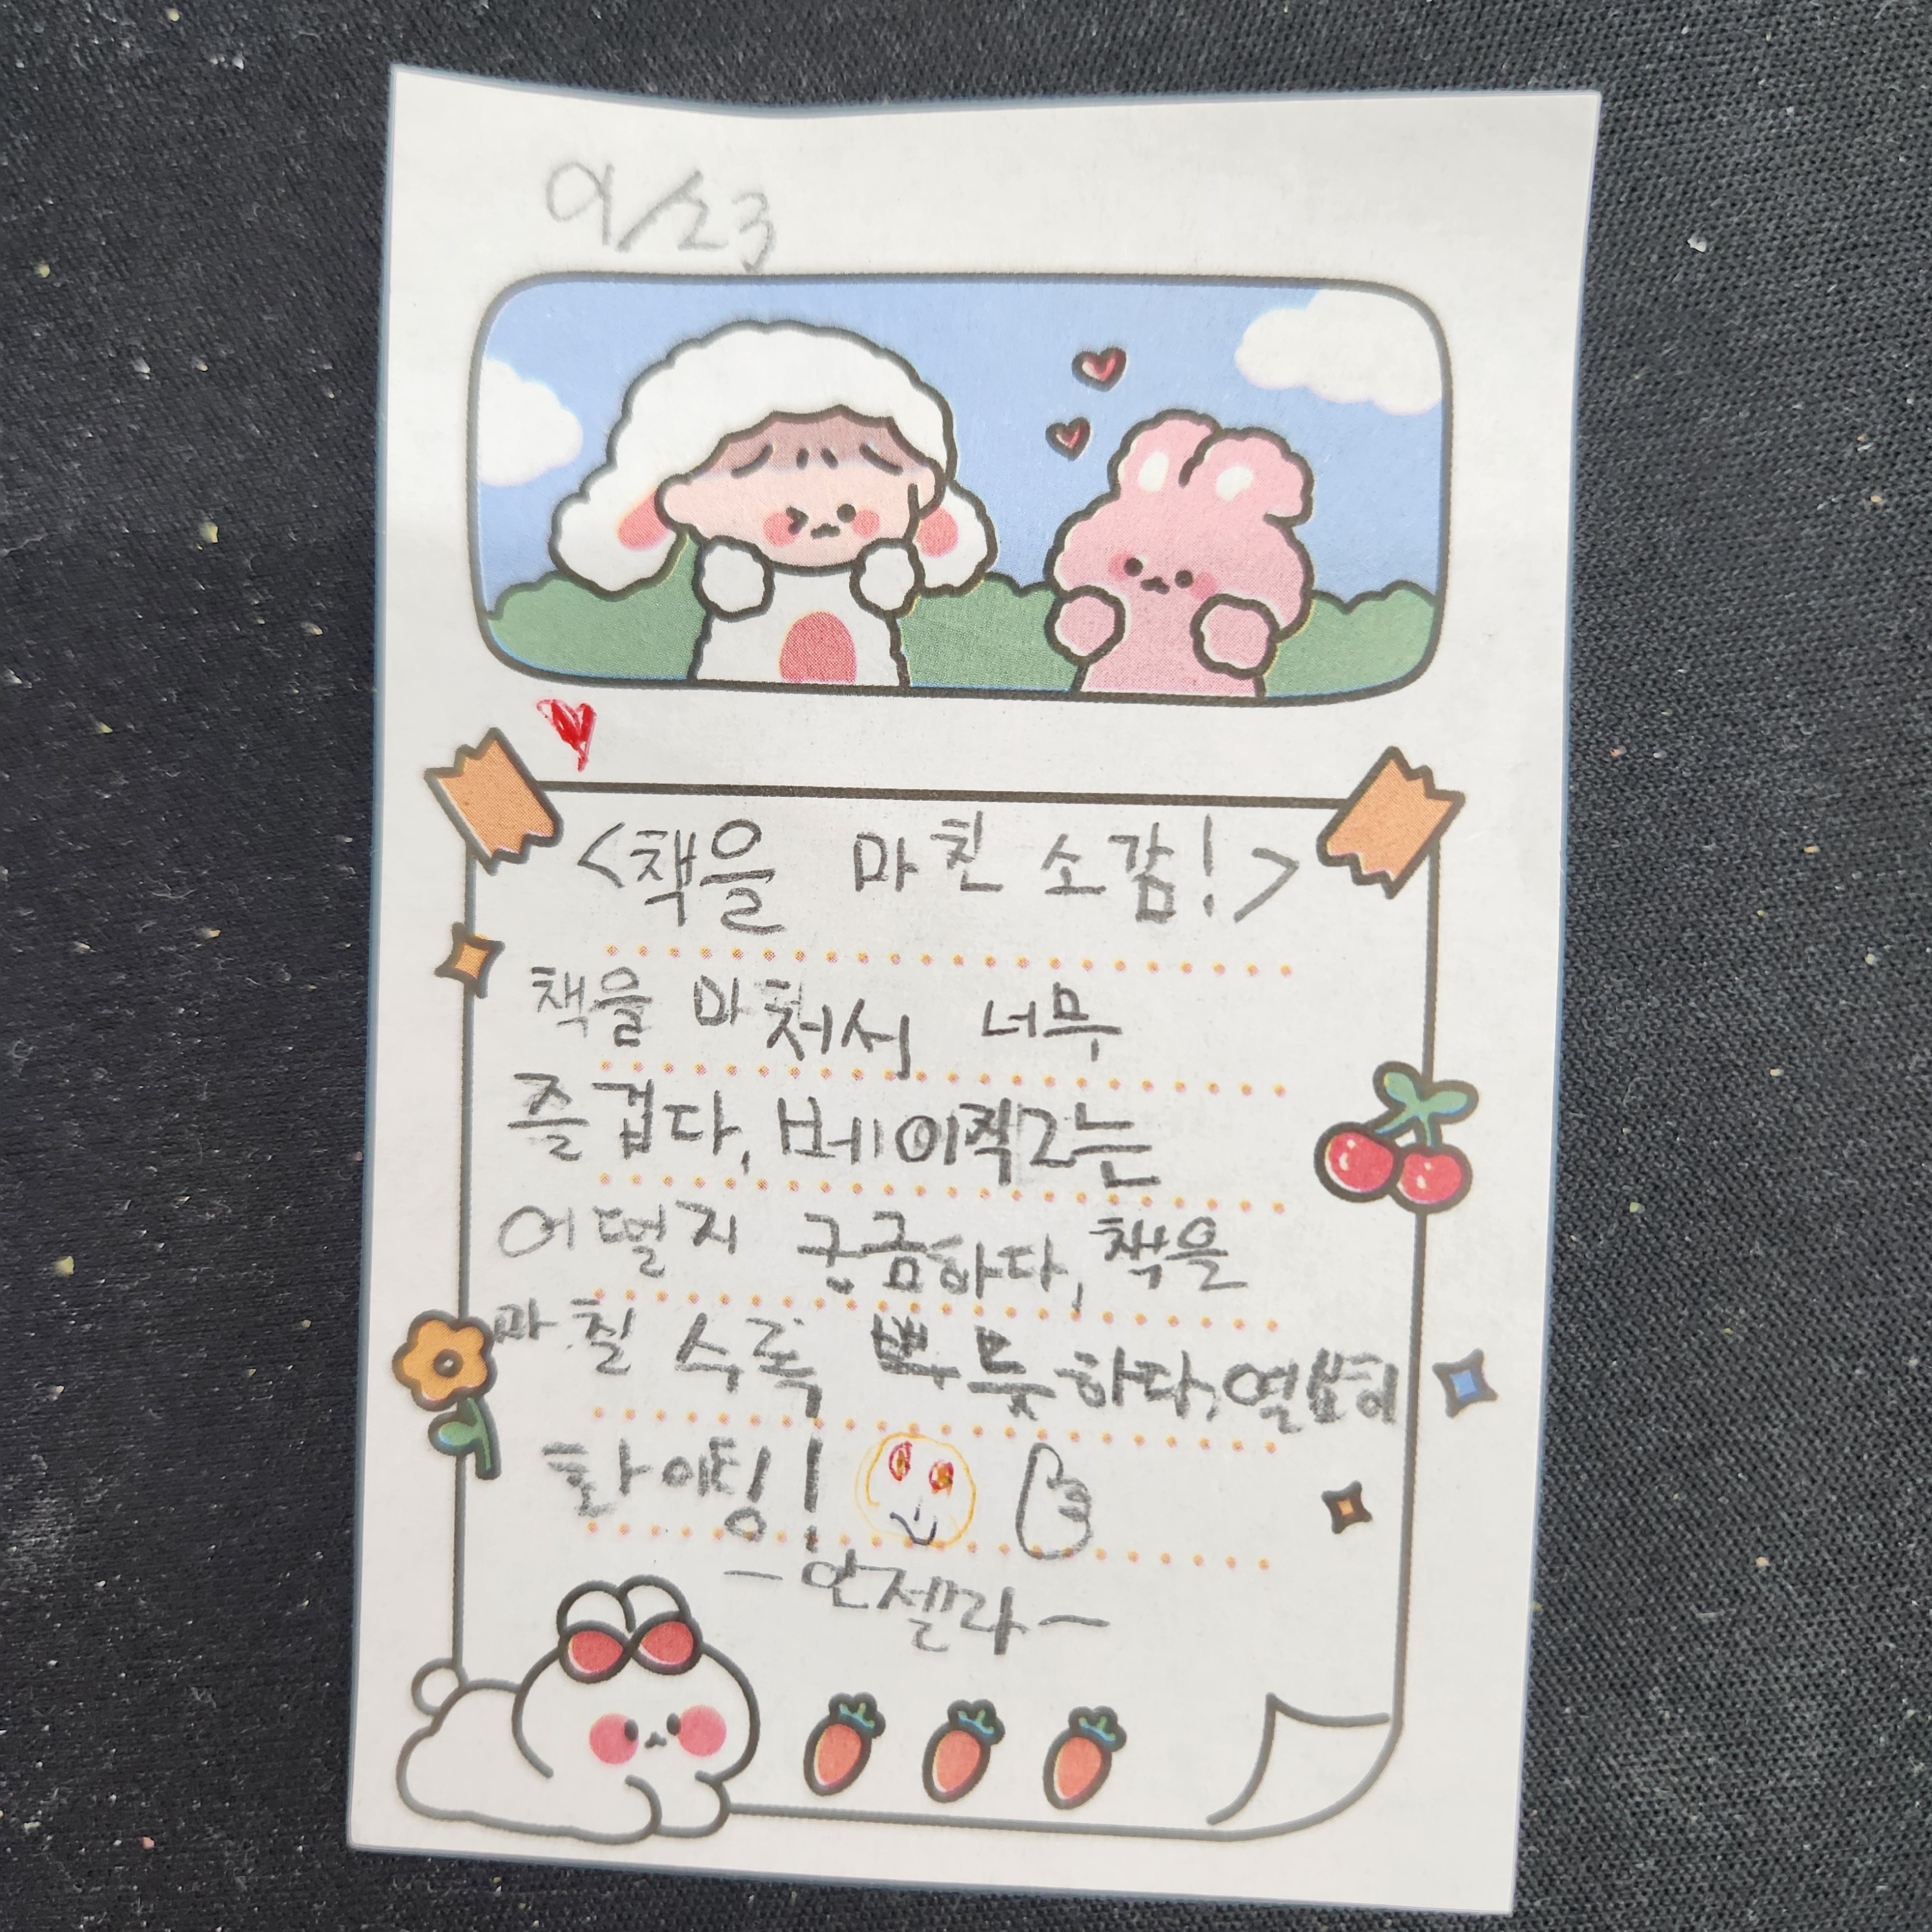 9/23
<책을 마친 소감!>
책을 마쳐서 너무
즐겁다, 베이직2는
어떨지 궁금하다, 책을
마칠 수록 뿌듯하다, 열심히
화이팅!
-안젤라-